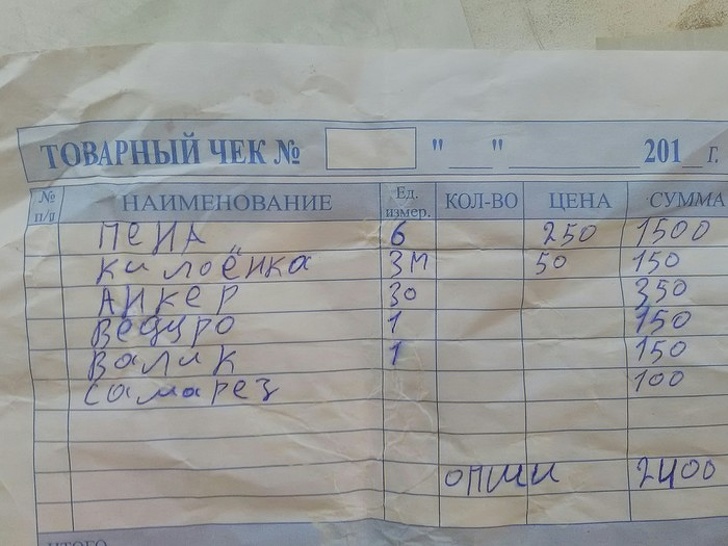 ТОВАРНЫЙ ЧЕК № "__" ________ 201_ г.
№ п/п НАИМЕНОВАНИЕ Ед. измер. КОЛ-ВО ЦЕНА СУММА
ПЕНА 6 250 1500
килоёнка 3м 50 150
АНКЕР 30 350
Ведцро 1 150
Валик 1 150
самарез 100
опший 2400
ИТОГО